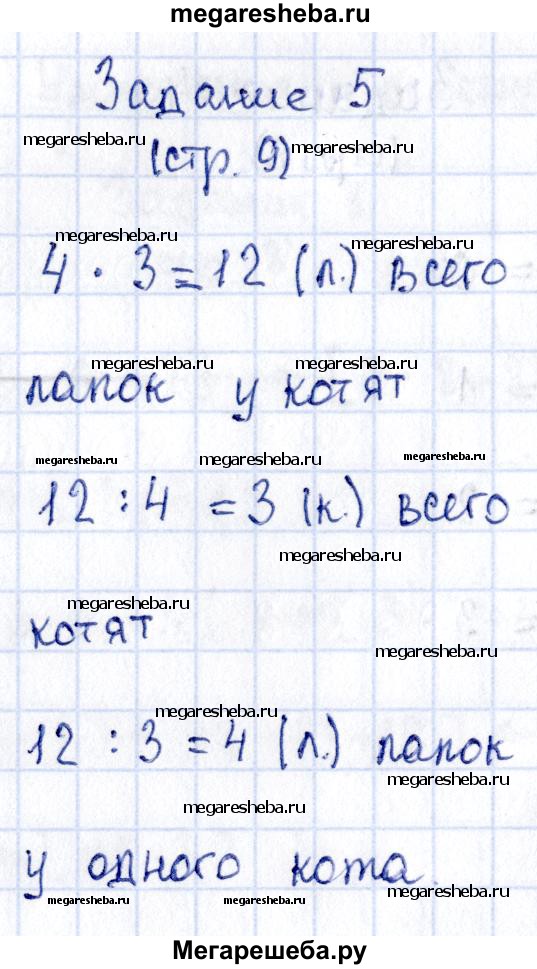 megaresheba.ru
Задание 5
megaresheba.ru
(стр. 9) megaresheba.ru
megaresheba.ru megaresheba.ru
4 · 3 = 12 (л.) всего
megaresheba.ru megaresheba.ru
лапок у котят
megaresheba.ru megaresheba.ru megaresheba.ru
12 : 4 = 3 (к.) всего
megaresheba.ru
megaresheba.ru
котят
megaresheba.ru
megaresheba.ru
12 : 3 = 4 (л.) лапок
megaresheba.ru
megaresheba.ru
у одного кота
megaresheba.ru
megaresheba.ru megaresheba.ru
Мегарешеба.ру